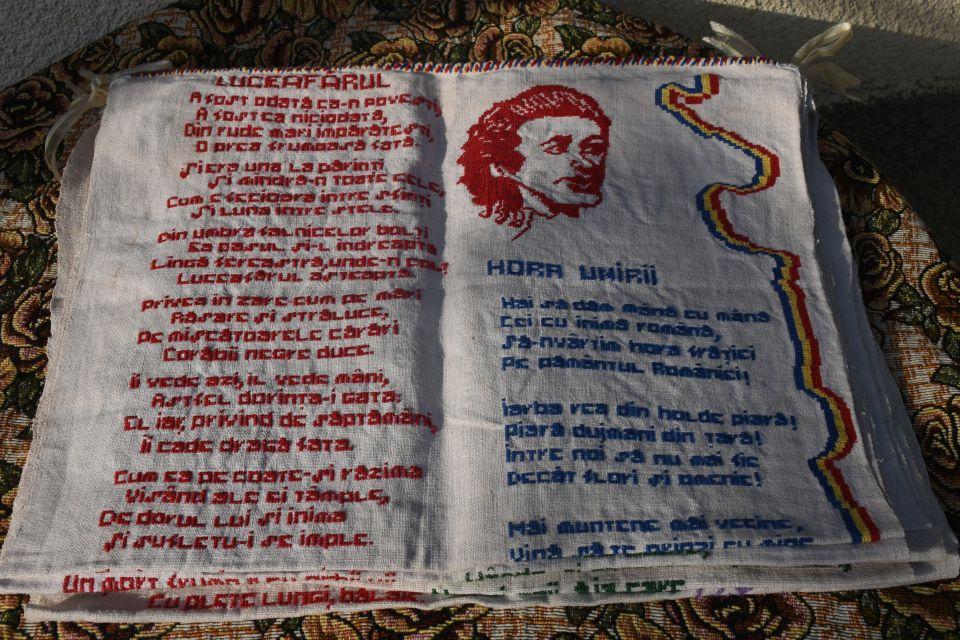 LUCEAFĂRUL
A fost odată ca-n povești
A fost ca niciodată,
Din rude mari împărătești,
O prea frumoasă fată.
Și era una la părinți
Și mîndră-n toate cele,
Cum e fecioara între sfinți
Și luna între stele.
Din umbra falnicelor bolți
Ea pasul și-l îndreaptă
Lîngă fereastră, unde-n colț
Luceafărul așteaptă
Privea în zare cum pe mări
Răsare și străluce,
Pe mișcătoarele cărări
Corăbii negre duce.
Îl vede azi, îl vede mâni,
Astfel dorința-i gata;
El iar, privind de săptămâni,
Îi cade dragă fata.
Cum ea pe coate-și răzima
Visând ale ei tâmple,
De dorul lui și inima
Și sufletu-i se împle.
Un mort frumos cu
Cu plete lungi, bălaie
HORA UNIRII
Hai să dăm mână cu mână
Cei cu inima română,
Să-nvârtim hora frăției
Pe pământul României!
Iarba rea din holde piară!
Piară dujmani din țară!
Între noi să nu mai fie
Decât flori și omenie!
Măi muntene măi vecine,
Vină să te prinzi cu mine